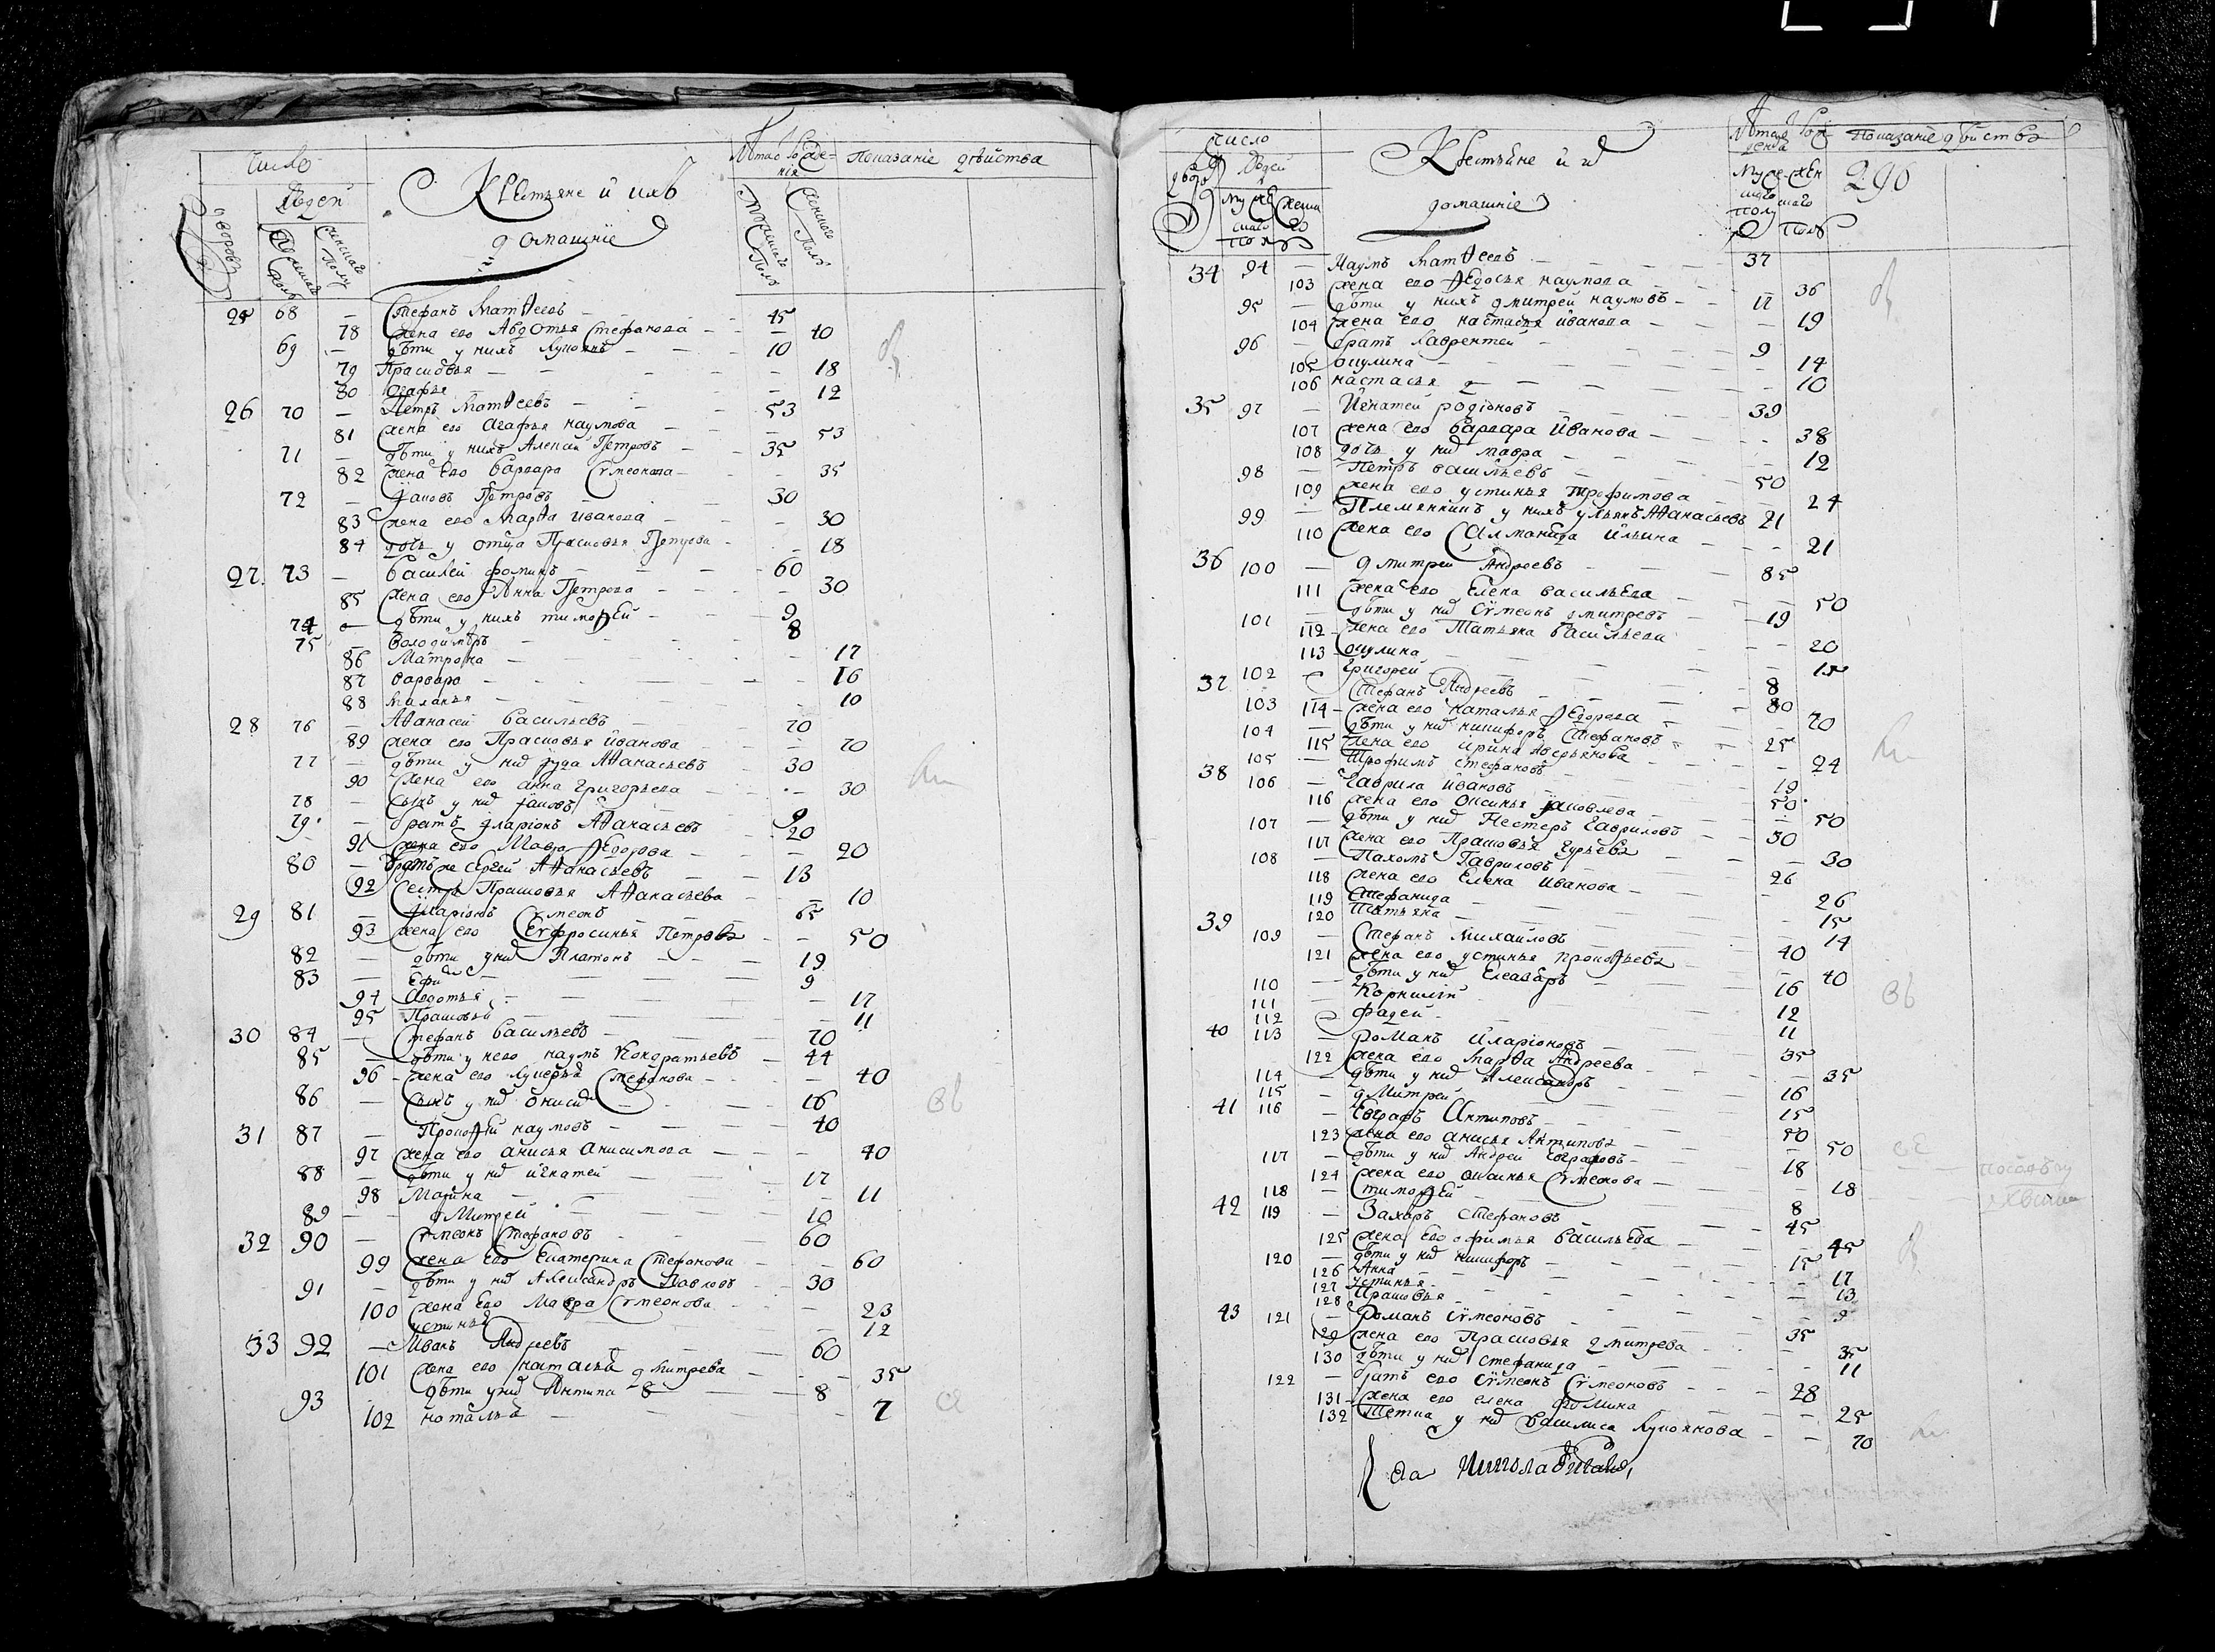 число
Людей
Крестьяне и ихъ
домашніе
Лѣта Рожденія
Показаніе дѣйства
дворовъ
Мужеска Полу
Женскаго Полу
Мужескаго Полу
Женскаго Полу
25 68 — Стефанъ Матѳеевъ 45
78 Жена его Авдотья Стефанова 40
69 — дѣти у нихъ Лукоянъ 10
79 Прасковья 18
80 Агафья 12
26 70 — Петръ Матѳеевъ 53
81 Жена его Агафья Наумова 53
71 — дѣти у нихъ Алексей Петровъ 35
82 Жена Его Варвара Сѵмеонова 35
72 — Іаковъ Петровъ 30
83 Жена его Марѳа Иванова 30
84 дочь у отца Прасковья Петрова 18
27 73 — Василей Фоминъ 60
85 Жена его Анна Петрова 30
74 — дѣти у нихъ Тимоѳей 9
75 — Володимѣръ 8
86 Матрона 17
87 Варвара 16
88 Маланья 10
28 76 — Аѳанасей Васильевъ 70
89 Жена его Прасковья Иванова 70
77 — дѣти у них Іуда Аѳанасьевъ 30
90 Жена его Анна Григорьева 30
78 — Сынъ у них Іаковъ 9
79 — братъ Іларіонъ Аѳанасьевъ 20
91 Жена его Мавра Ѳедорова 20
80 — Братъ же Сергей Аѳанасьевъ 13
92 Сестра Прасковья Аѳанасьева 10
29 81 — Іларіонъ Сѵмеонъ 65
93 Жена его Евфросинья Петрова 50
82 — дѣти у них Платонъ 19
83 — Ефи 9
94 Авдотья 17
95 Прасковья 11
30 84 — Стефанъ Васильевъ 70
85 — дѣти у него Наумъ Кондратьевъ 44
96 Жена его Лукерья Стефанова 40
86 — Сынъ у нихОниси 16
31 87 — Прокоѳей Наумовъ 40
97 Жена его Анисья Анисимова 40
88 — дѣти у них Игнатей 17
98 Марина 11
89 — дмитрей 10
32 90 — Сѵмеонъ Стефановъ 60
99 Жена Его Екатерина Стефанова 60
91 — дѣти у них Александръ Павловъ 30
100 Жена Его Мавра Сѵмеонова 23
устинья 12
33 92 — Иванъ Андреевъ 60
101 Жена его Наталья дмитрева 35
93 дѣти у них Антипа 8 8
102 Наталья 7
число
Людей
Крестьяне и их
домашніе
Лѣта Рожденія
Показаніе дѣйства
290
34 94 — Наумъ Матѳеевъ 37
103 Жена его Ѳедосья Наумова 36
95 — дѣти у нихъ дмитрей Наумовъ 17
104 Жена его Настасья Иванова 19
96 — братъ Лаврентей 9
105 Окулина 14
106 Настасья 10
35 97 — Игнатей Родіоновъ 39
107 Жена его Варвара Иванова 38
108 дочь у них Мавра 12
98 — Петръ Васильевъ 50
109 Жена его устинья Трофимова 24
99 — Племянникъ у нихъ ульянъ Аѳанасьевъ 21
110 Жена его Саломанида Ильина 21
36 100 — дмитрей Андреевъ 85
111 Жена его Елена Васильева 50
101 — дѣти у них Сѵмеонъ дмитревъ 19
112 Жена его Татьяна Васильева 20
113 Окулина 15
102 — Григорей 8
37 103 Стефанъ Андреевъ 80
114 Жена его Наталья Ѳедорова 70
104 дѣти у них Никифоръ Стефановъ 25
115 Жена его Ирина Аверьянова 24
105 — Трофимъ Стефановъ 19
38 106 — Гаврила Ивановъ 50
116 Жена его Оксинья Іаковлева 50
107 — дѣти у них Нестеръ Гавриловъ 30
117 Жена его Прасковья Гурьева 30
108 — Пахомъ Гавриловъ 26
118 Жена его Елена Иванова 26
119 Стефанида 15
120 Татьяна 14
39 109 — Стефанъ Михайловъ 40
121 Жена его устинья Прокоѳьева 40
110 — дѣти у них Елеазаръ 16
111 — Корнилій 12
112 — Фадей 11
40 113 — Романъ Иларіоновъ 35
122 Жена его Марѳа Андреева 35
114 — дѣти у них Александръ 16
115 — дмитрей 15
41 116 — Евграфъ Антиповъ 50
123 Жена его Анисья Антипова 50
117 — дѣти у них Андрей Евграфовъ 18
124 Жена его Оксинья Сѵмеонова 18
118 — Тимоѳей 8
42 119 — Захаръ Стефановъ 45
125 Жена Его Офимья Васильева 45
120 — дѣти у них Никифоръ 15
126 Анна 17
127 устинья 13
128 Прасковья 9
43 121 — Романъ Сѵмеоновъ 35
129 Жена его Прасковья дмитрева 35
130 дѣти у них Стефанида 11
122 — братъ его Сѵмеонъ Сѵмеоновъ 28
131 Жена его Елена Фомина 25
132 Тетка у них Василиса Лукоянова 70